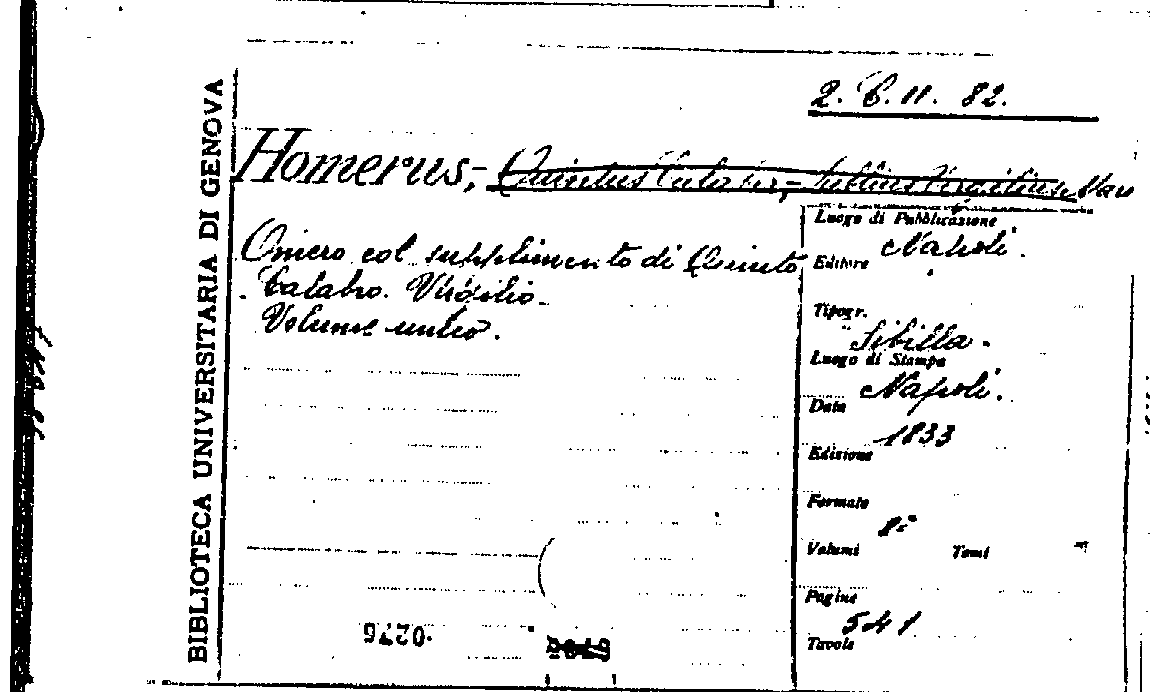 BIBLIOTECA UNIVERSITARIA DI GENOVA
2. C. 11. 82.
Homerus,- Quintus Calaber,- Publius Virgilius Maro
Omero col supplimento di Quinto
Calabro. Virgilio.
Volume unico.
Luogo di Pubblicazione
Napoli.
Editore
Tipogr.
Sibilla.
Luogo di Stampa
Napoli.
Data
1833
Edizione
Formato
8°
Volumi Tomi
Pagine
541
Tavole
0276